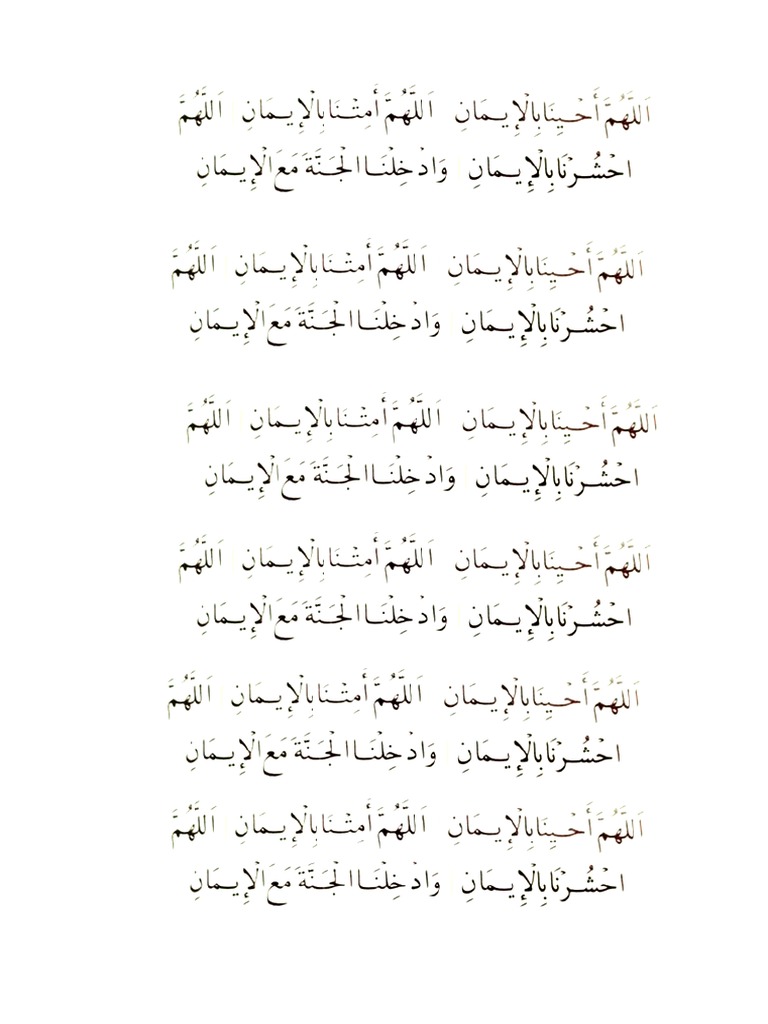 اَللَّهُمَّ أَحْيِنَا بِالْإِيمَانِ اَللَّهُمَّ أَمِتْنَا بِالْإِيمَانِ اَللَّهُمَّ
احْشُرْنَا بِالْإِيمَانِ وَادْخِلْنَا الْجَنَّةَ مَعَ الْإِيمَانِ
اَللَّهُمَّ أَحْيِنَا بِالْإِيمَانِ اَللَّهُمَّ أَمِتْنَا بِالْإِيمَانِ اَللَّهُمَّ
احْشُرْنَا بِالْإِيمَانِ وَادْخِلْنَا الْجَنَّةَ مَعَ الْإِيمَانِ
اَللَّهُمَّ أَحْيِنَا بِالْإِيمَانِ اَللَّهُمَّ أَمِتْنَا بِالْإِيمَانِ اَللَّهُمَّ
احْشُرْنَا بِالْإِيمَانِ وَادْخِلْنَا الْجَنَّةَ مَعَ الْإِيمَانِ
اَللَّهُمَّ أَحْيِنَا بِالْإِيمَانِ اَللَّهُمَّ أَمِتْنَا بِالْإِيمَانِ اَللَّهُمَّ
احْشُرْنَا بِالْإِيمَانِ وَادْخِلْنَا الْجَنَّةَ مَعَ الْإِيمَانِ
اَللَّهُمَّ أَحْيِنَا بِالْإِيمَانِ اَللَّهُمَّ أَمِتْنَا بِالْإِيمَانِ اَللَّهُمَّ
احْشُرْنَا بِالْإِيمَانِ وَادْخِلْنَا الْجَنَّةَ مَعَ الْإِيمَانِ
اَللَّهُمَّ أَحْيِنَا بِالْإِيمَانِ اَللَّهُمَّ أَمِتْنَا بِالْإِيمَانِ اَللَّهُمَّ
احْشُرْنَا بِالْإِيمَانِ وَادْخِلْنَا الْجَنَّةَ مَعَ الْإِيمَانِ